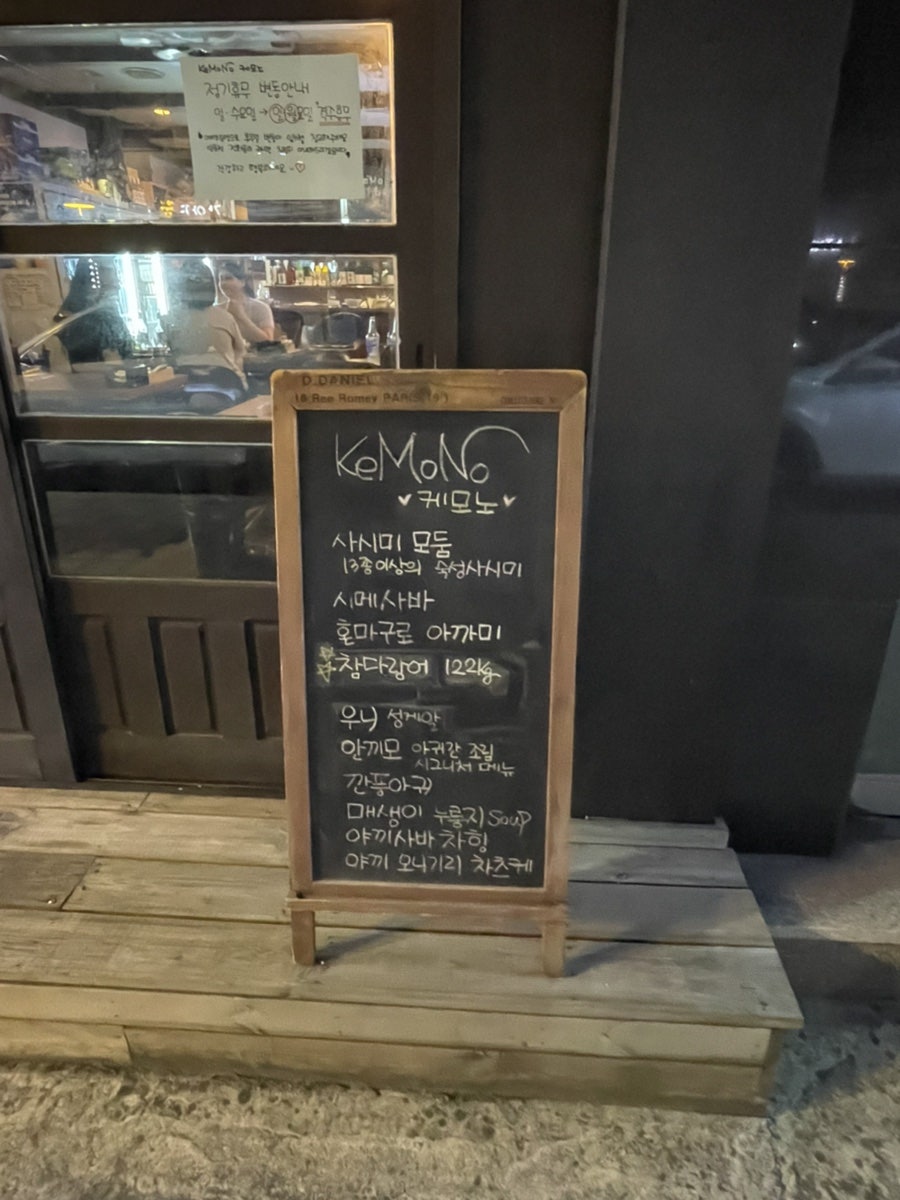 KeMoNo 케모노
정기휴무 변동안내
일·수요일 → 일,월요일 격주휴무
KeMoNo
♥케모노♥
사시미 모둠
13종이상의 숙성사시미
시메사바
혼마구로 아까미
참다랑어 122kg
우니 성게알
안끼모 아귀간 조림
시그니처 메뉴
깐풍아귀
매생이 누룽지 SOUP
야끼사바 차항
야끼 오니기리 차츠케
D.DANIEL
18 Ree Romey PARIS (19°)